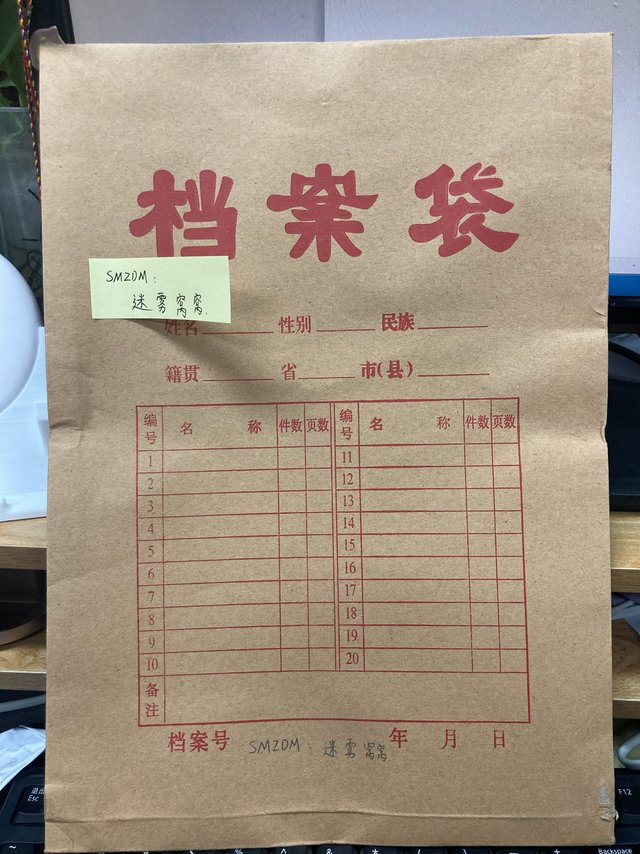 档案袋
SMZDM:
迷雾窝窝.
姓名 性别 民族
籍贯 省 市(县)
编号 名 称 件数 页数 编号 名 称 件数 页数
1 11
2 12
3 13
4 14
5 15
6 16
7 17
8 18
9 19
10 20
备注
档案号 SMZDM: 迷雾窝窝 年 月 日
退出
Esc
F12
% ^ & * ( )
Backspace